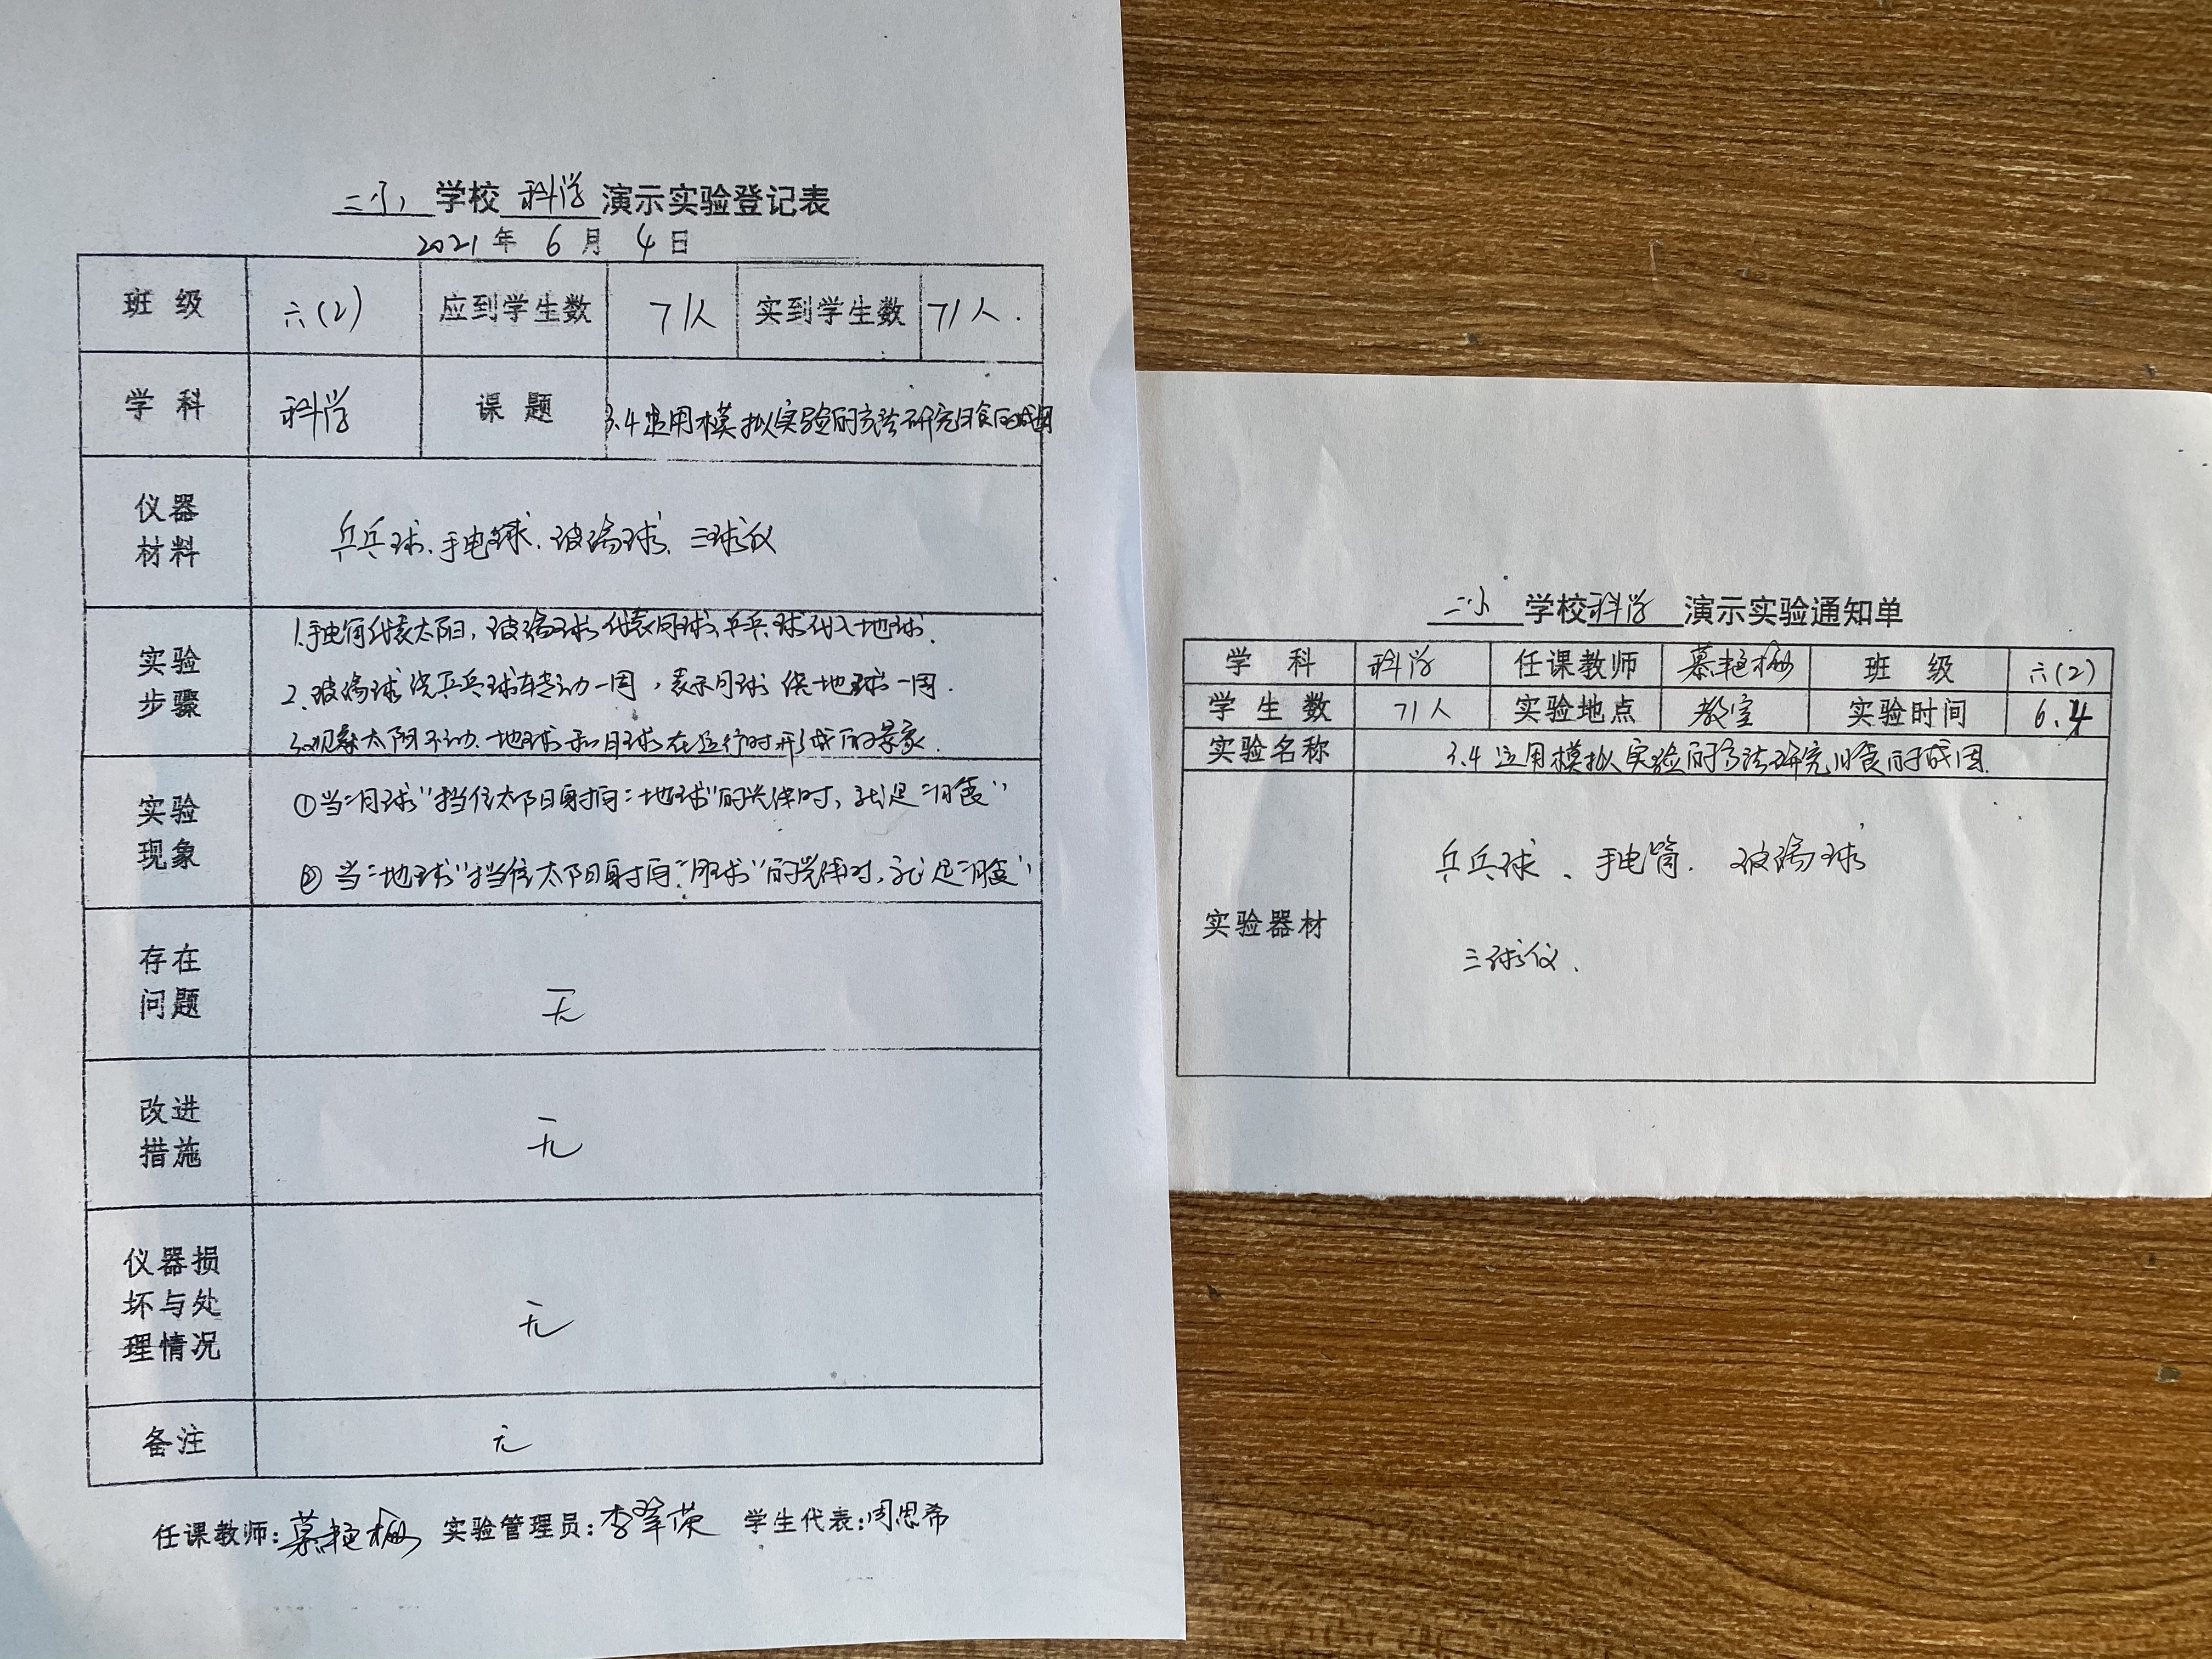 二小 学校 科学 演示实验登记表
2021 年 6 月 4 日
班 级 六(2) 应到学生数 71人 实到学生数 71人.
学 科 科学 课 题 3.4运用模拟实验的方法研究日食的成因
仪器材料 乒乓球、手电球、玻璃球、三球仪
实验步骤 1.手电筒代表太阳,玻璃球代表月球,乒乓球代入地球.
2.玻璃球绕乒乓球转动一周,表示月球绕地球一周.
3.观察太阳不动、地球和月球在运行时形成的景象.
实验现象 ①当“月球”挡住太阳射向“地球”的光线时,就是“日食”
② 当“地球”挡住太阳射向“月球”的光线时,就是“月食”
存在问题 无
改进措施 无
仪器损坏与处理情况 无
备注 无
任课教师:慕艳梅 实验管理员:李翠荣 学生代表:周思希
二小 学校科学 演示实验通知单
学 科 科学 任课教师 慕艳梅 班 级 六(2)
学 生 数 71人 实验地点 教室 实验时间 6.4
实验名称 3.4 运用模拟实验的方法研究日食的成因.
实验器材 乒乓球、手电筒. 玻璃球
三球仪.